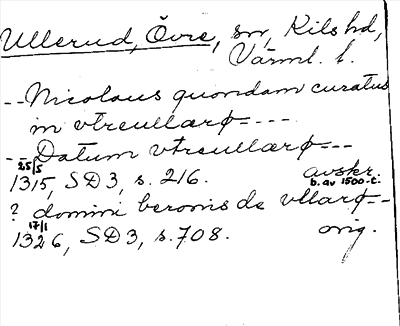 Ullerud, Övre, sn, Kils hd,
Värml. l.
-- Nicolaus quondam curatus
in vtreullarø ----
-- Datum vtreullarø ---
25/5
1315, SD 3, s. 216. avskr.
b. av 1500-t.
? domini beronis de vllarø --
17/1
1326, SD 3, s. 708. orig.